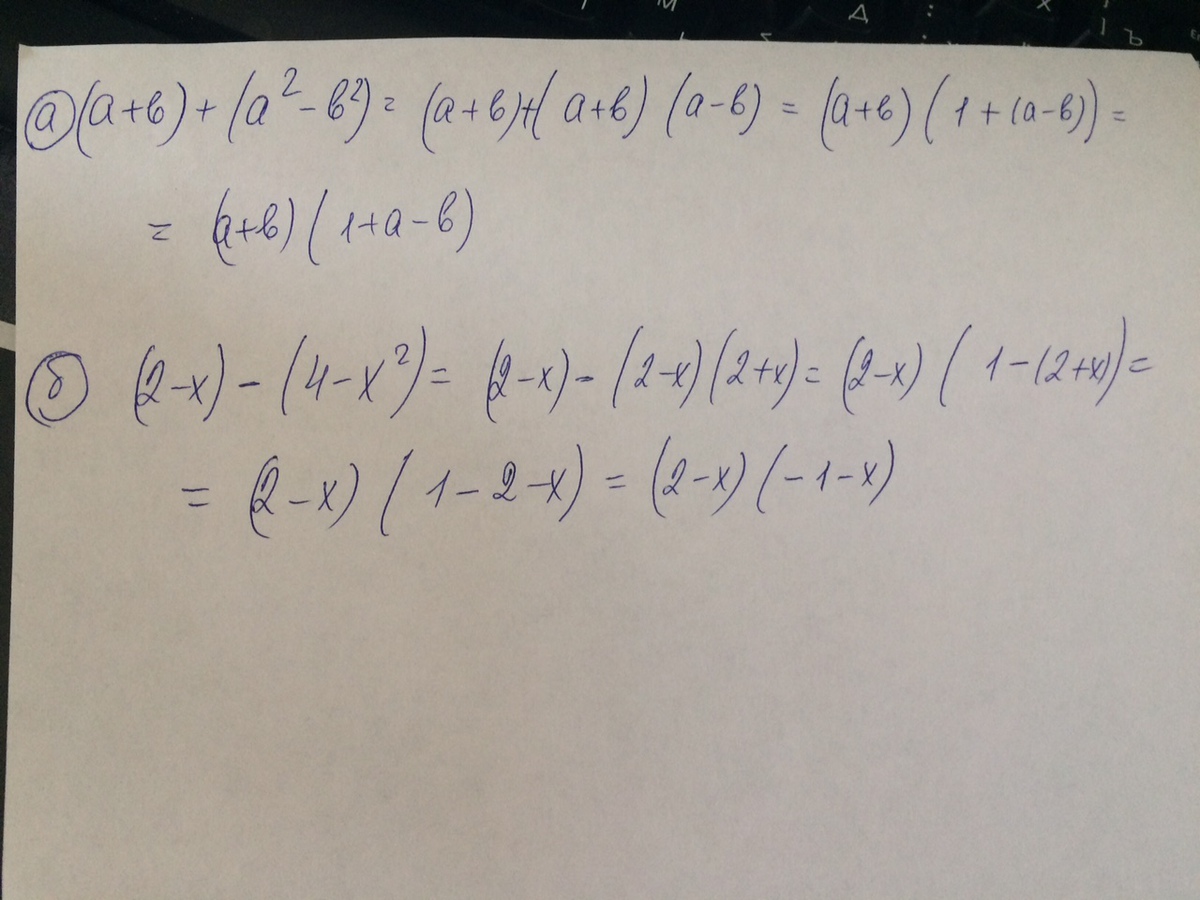 М Д : Х Ъ
а) (a+в) + (a²-в²) = (a+в)+(a+в) (a-в) = (a+в) (1+(a-в)) =
= (a+в) (1+a-в)
б) (2-x) - (4-x²) = (2-x) - (2-x) (2+x) = (2-x) (1-(2+x)) =
= (2-x) (1-2-x) = (2-x) (-1-x)